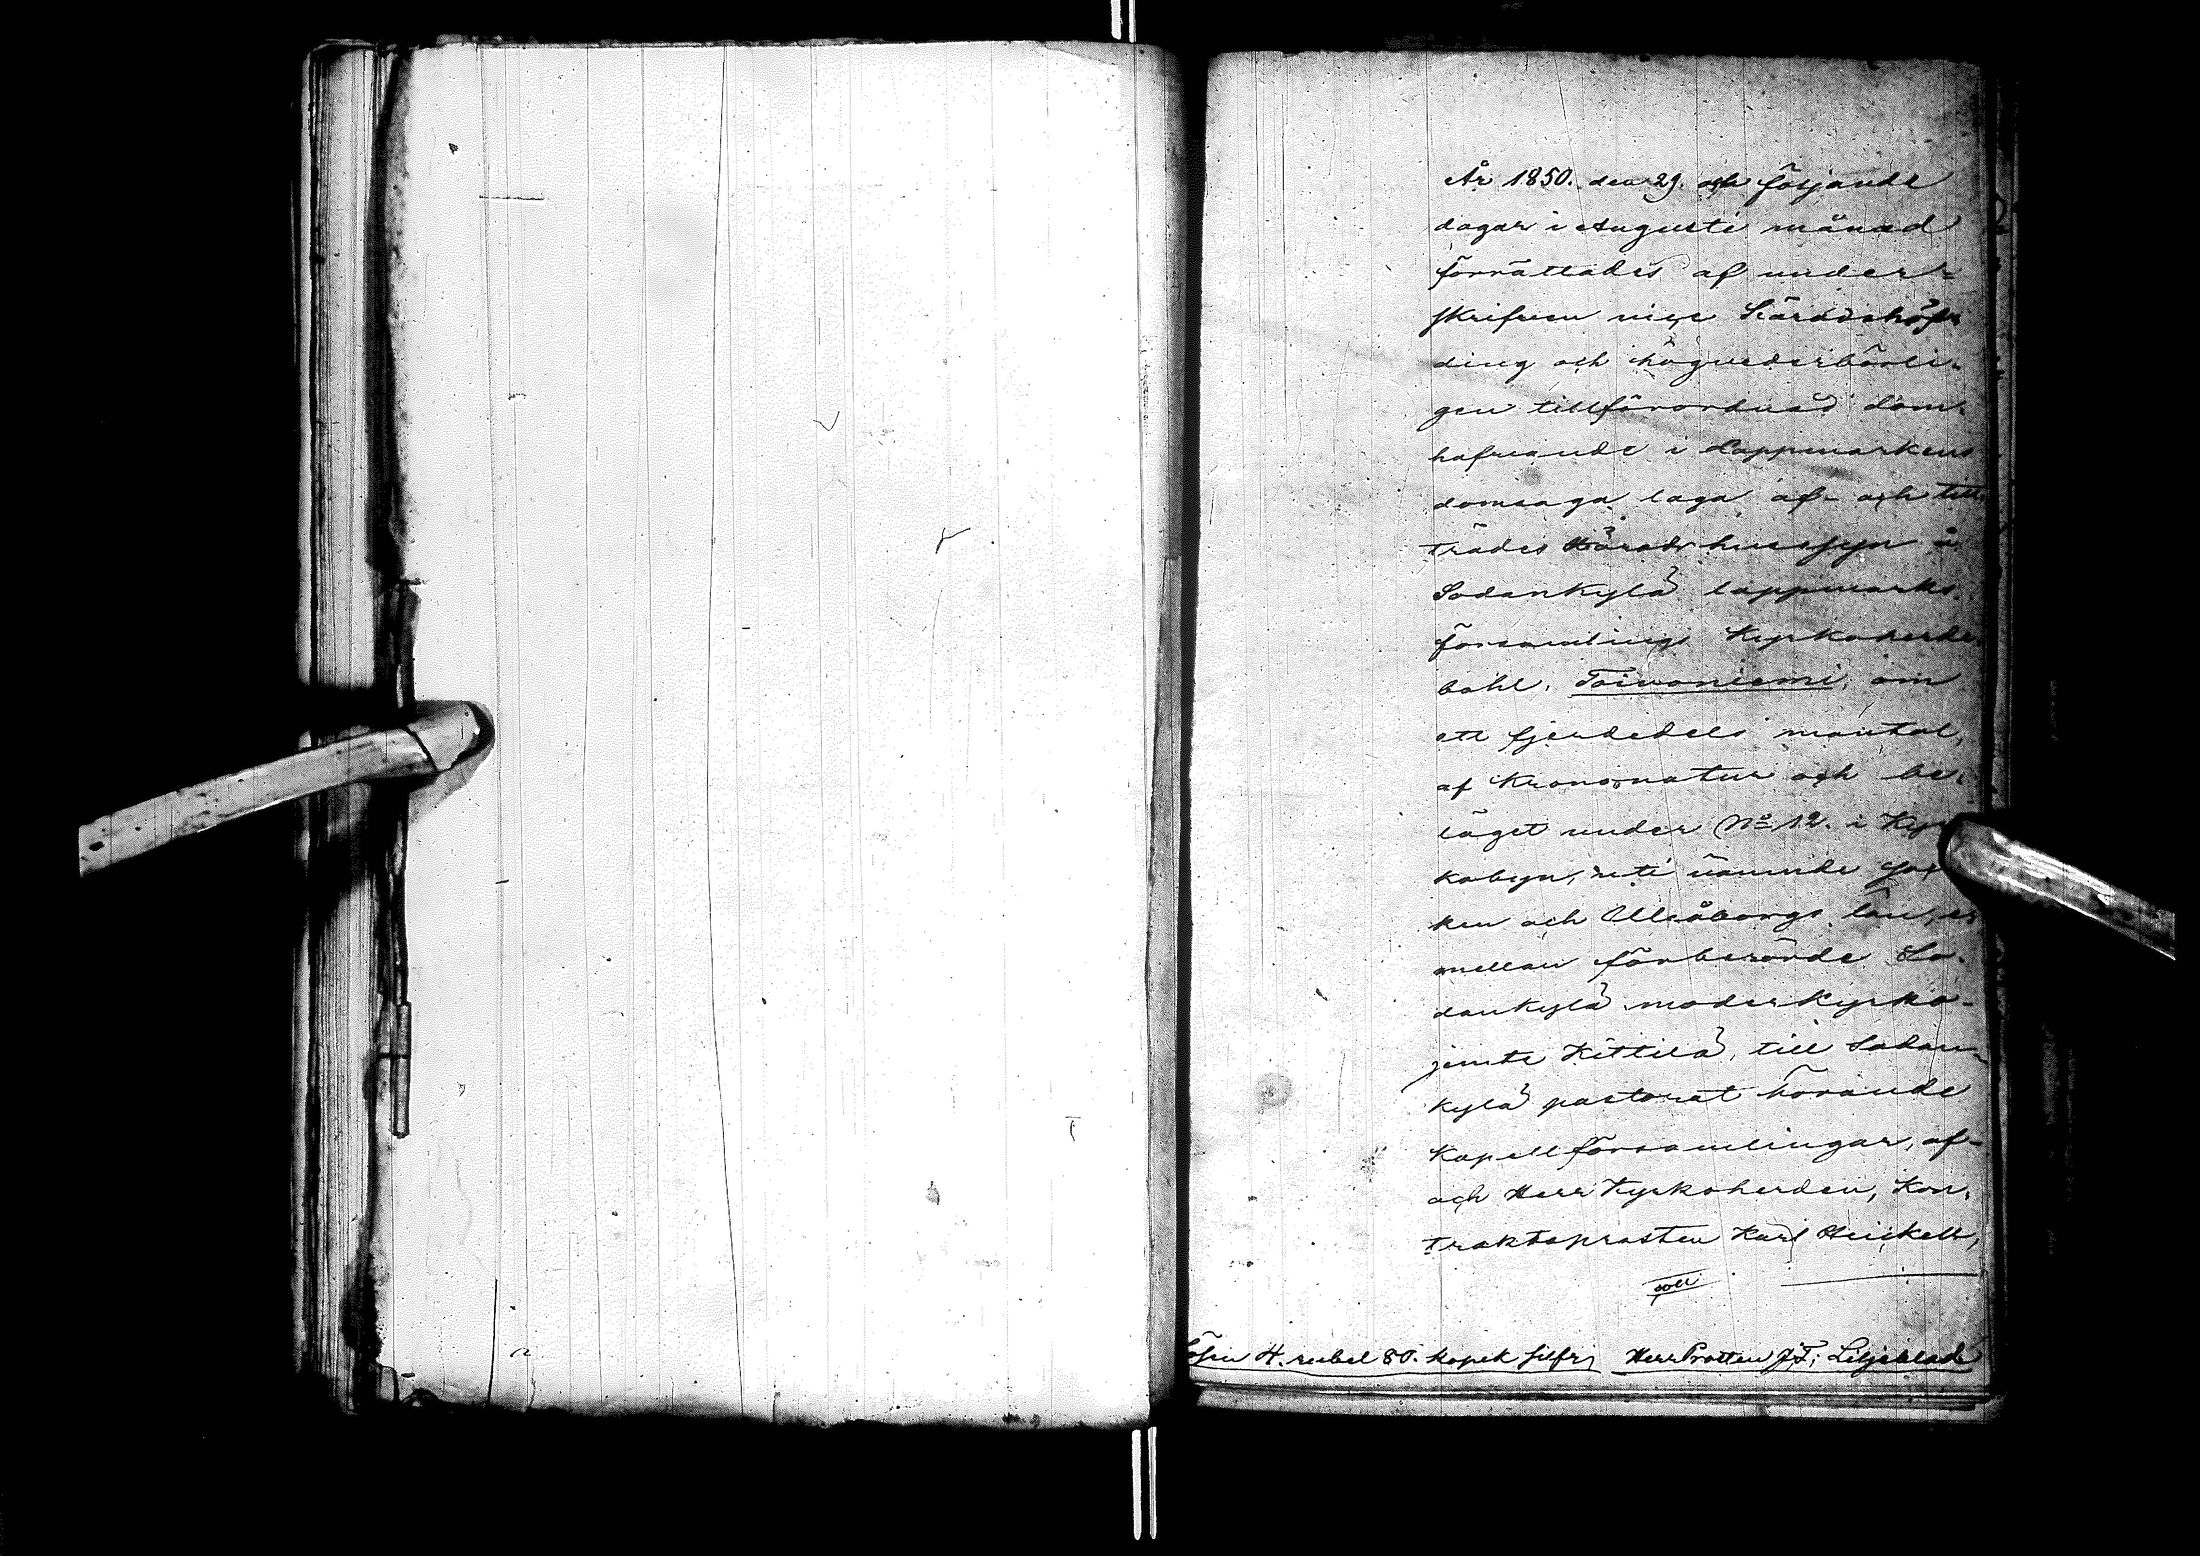 År 1850. den 29. och följande
dagar i Augusti månad
förrättades af under-
skrifven vice Häradshöf-
ding och högvederbörli-
gen tillförordnad dom-
hafvande i Lappmarkens
domsaga laga af- och till-
trädes Härads hussyn å
Sodankylä lappmarks
församlings Kyrkoherde
bohl, Toivoniemi, om
ett fjerdedels mantal,
af Krono natur och be-
läget under No 12. i Kyr
kobyn, uti nämnde Soc
ken och Uleåborgs län, e
mellan förberörde So-
dankylä moderkyrko-
jemte Kittilä, till Sodan-
kylä pastorat hörande
kapellförsamlingar, af-
och Herr Kyrkoherden, Kon-
traktsprosten Karl Heickell,
och
Lösen 4. rubel 80. kopek silfr; Herr Prosten J. F. Liljeblad